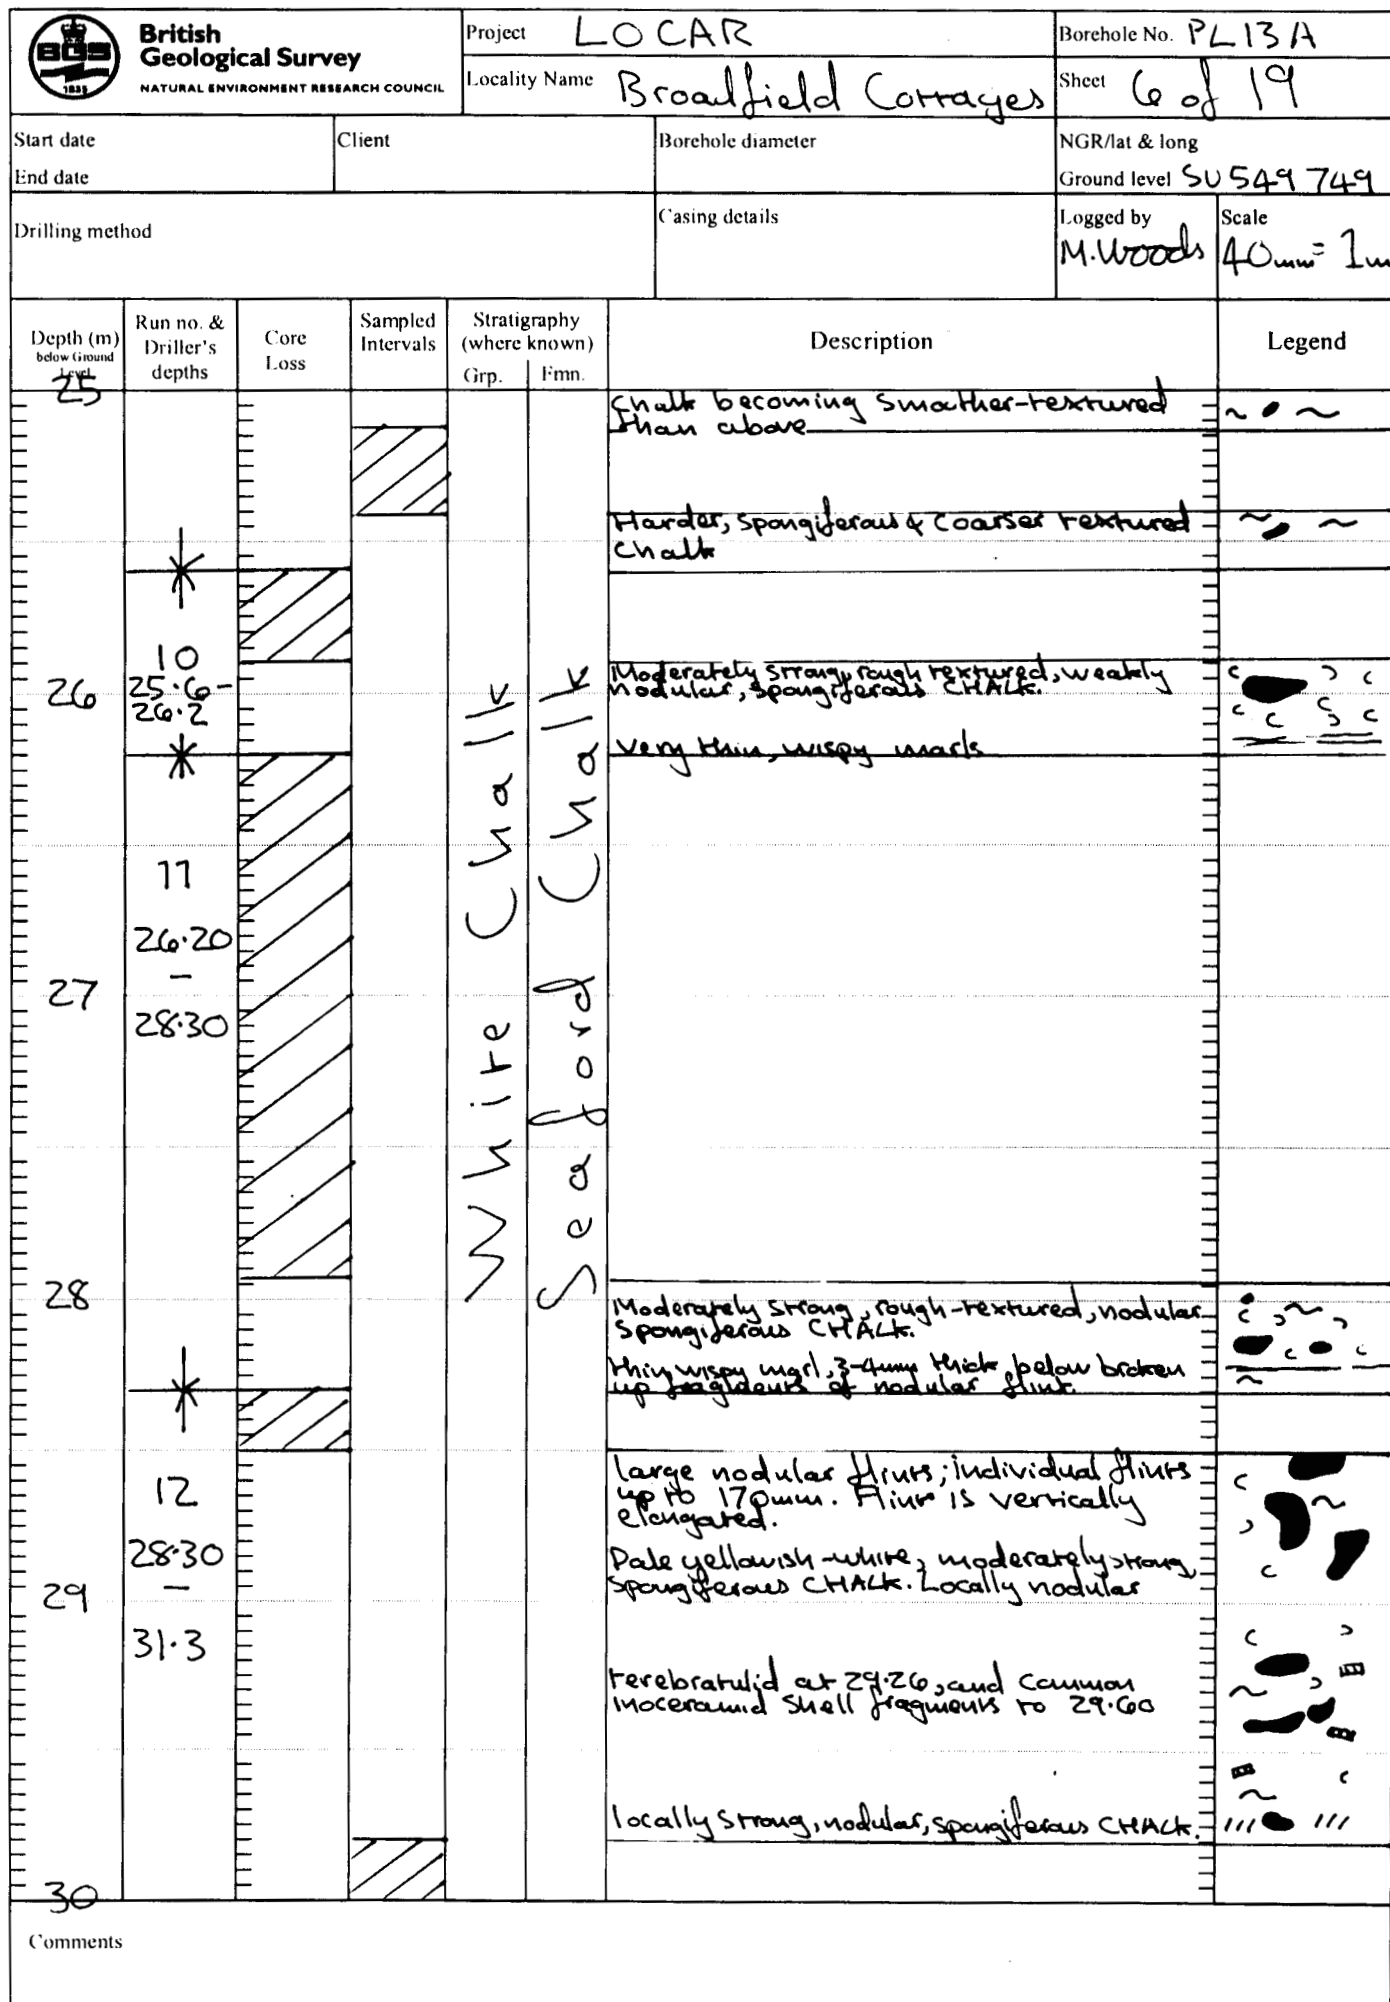 BGS
1835
British
Geological Survey
NATURAL ENVIRONMENT RESEARCH COUNCIL
Project LOCAR
Borehole No. PL13A
Locality Name Broadfield Cottages
Sheet 6 of 19
Start date
End date
Client
Borehole diameter
NGR/lat & long
Ground level SU 549 749
Drilling method
Casing details
Logged by
M. Woods
Scale
40mm = 1m
Depth (m)
below Ground
Level
Run no. &
Driller's
depths
Core
Loss
Sampled
Intervals
Stratigraphy
(where known)
Grp.
Fmn.
Description
Legend
25
Chalk becoming smoother-textured
than above
Harder, spongiferous & coarser textured
chalk
10
25.6-
26.2
26
Moderately strong, rough textured, weakly
nodular, spongiferous CHALK.
Very thin, wispy marls
White Chalk
Seaford Chalk
11
26.20
-
28.30
27
28
Moderately strong, rough-textured, nodular
spongiferous CHALK.
Thin wispy marl, 3-4mm thick, below broken
up fragments of nodular flint.
12
28.30
-
31.3
large nodular flints; individual flints
up to 170mm. Flint is vertically
elongated.
Pale yellowish-white, moderately strong,
spongiferous CHALK. Locally nodular
29
terebratulid at 29.26, and common
inoceramid shell fragments to 29.60
locally strong, nodular, spongiferous CHALK.
30
Comments